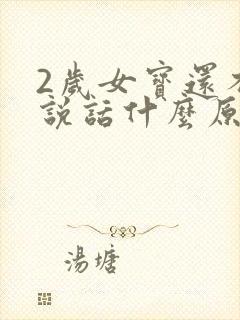 2歲女寶還
說話什麼原
湯塘